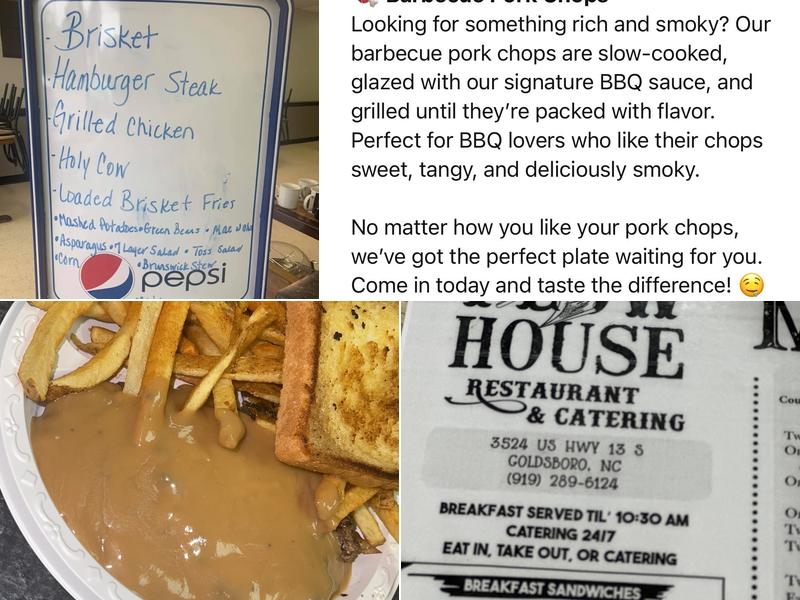 - Brisket
- Hamburger Steak
- Grilled Chicken
- Holy Cow
- Loaded Brisket Fries
• Mashed Potatoes • Green Beans • Mac n
• Asparagus • 7 Layer Salad • Toss Salad
• Corn • Brunswick Stew
pepsi
Barbecue Pork Chops
Looking for something rich and smoky? Our
barbecue pork chops are slow-cooked,
glazed with our signature BBQ sauce, and
grilled until they’re packed with flavor.
Perfect for BBQ lovers who like their chops
sweet, tangy, and deliciously smoky.
No matter how you like your pork chops,
we’ve got the perfect plate waiting for you.
Come in today and taste the difference! 🤤
HOUSE
RESTAURANT
& CATERING
3524 US HWY 13 S
GOLDSBORO, NC
(919) 289-6124
BREAKFAST SERVED TIL' 10:30 AM
CATERING 24/7
EAT IN, TAKE OUT, OR CATERING
BREAKFAST SANDWICHES